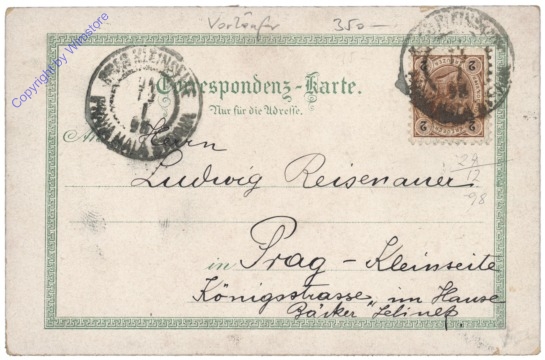 Vorläufer 350.—
Copyright by Winstore
Correspondenz-Karte.
Nur für die Adresse.
2 2
An Herrn
Ludwig Reisenauer
29
12
98
in Prag - Kleinseite
Königsstrasse, im Hause
Bäcker "Jelinek".